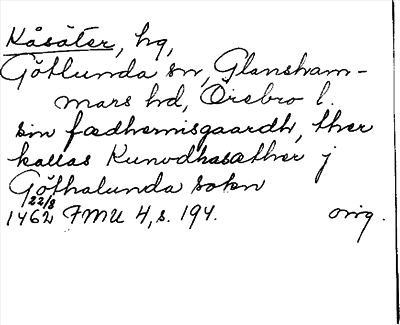 Kåsäter, hg,
Götlunda sn, Glansham-
mars hd, Örebro l.
sin fædhernisgaardh, ther
kallas Kunodhasæther j
Göthalunda sokn
22/8
1462 FMU 4, s. 194. orig.